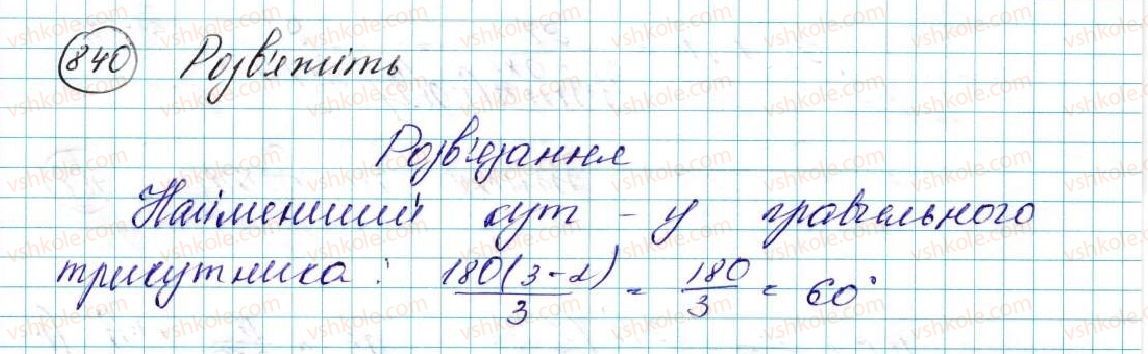 840 Розв'яжіть
Розв'язання
Найменший кут - у правильного
трикутника: 180(3-2)/3 = 180/3 = 60°